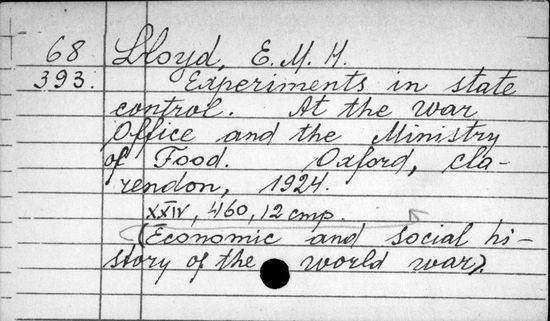 68 Lloyd, E. M. H.
393. Experiments in state
control. At the war
Office and the Ministry
of Food. Oxford, Cla-
rendon, 1924.
XXIV, 460, 12 стр.
(Economic and social hi-
story of the world war).